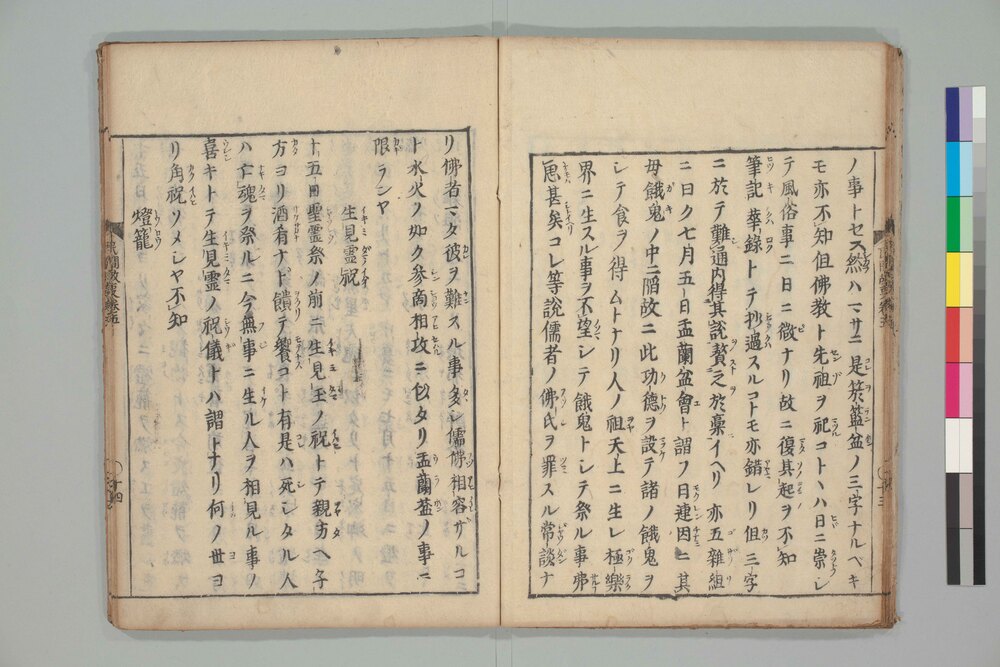 ノ事トセス然ハマサニ是於籃盆ノ三字ナルベキ
モ亦不知但佛教ト先祖ヲ祀コトヽハ日ニ崇シ
テ風俗事ニ日ニ微ナリ故ニ復其起ヲ不知
筆記葉録トテ抄過スルコトモ亦錯レリ但三字
ニ於テ難通内得其説贅之於藁イヘリ亦五雜組
ニ曰ク七月五日盂蘭盆會ト謂フ日連因ニ其
母餓鬼ノ中ニ陷故ニ此功德ヲ設テ諸ノ餓鬼ヲ
シテ食ヲ得ムトナリ人ノ祖天上ニ生レ極樂
界ニ生スル事ヲ不望シテ餓鬼トシテ祭ル事弗
思甚矣コレ等説儒者ノ佛氏ヲ罪スル常談ナ
リ佛者マタ彼ヲ難スル事多シ儒佛相容サルコ
ト水火ノ如ク參商相攻ニ似タリ盂蘭盆ノ事ニ
限ランヤ
生見霊祝
十五日聖霊祭ノ前ニ生見玉ノ祝トテ親方ヘ子
方ヨリ酒肴ナド饋テ饗コト有是ハ死シタル人
ハ亡魂ヲ祭ルニ今無事ニ生ル人ヲ相見ル事ノ
喜キトテ生見霊ノ祝儀トハ謂トナリ何ノ世ヨ
リ角祝ソメシヤ不知
燈籠